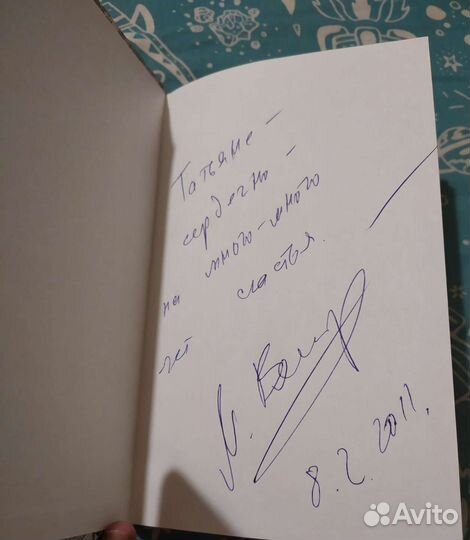 Татьяне –
сердечно –
на много-много
лет счастья.
8.2.2011.
Avito